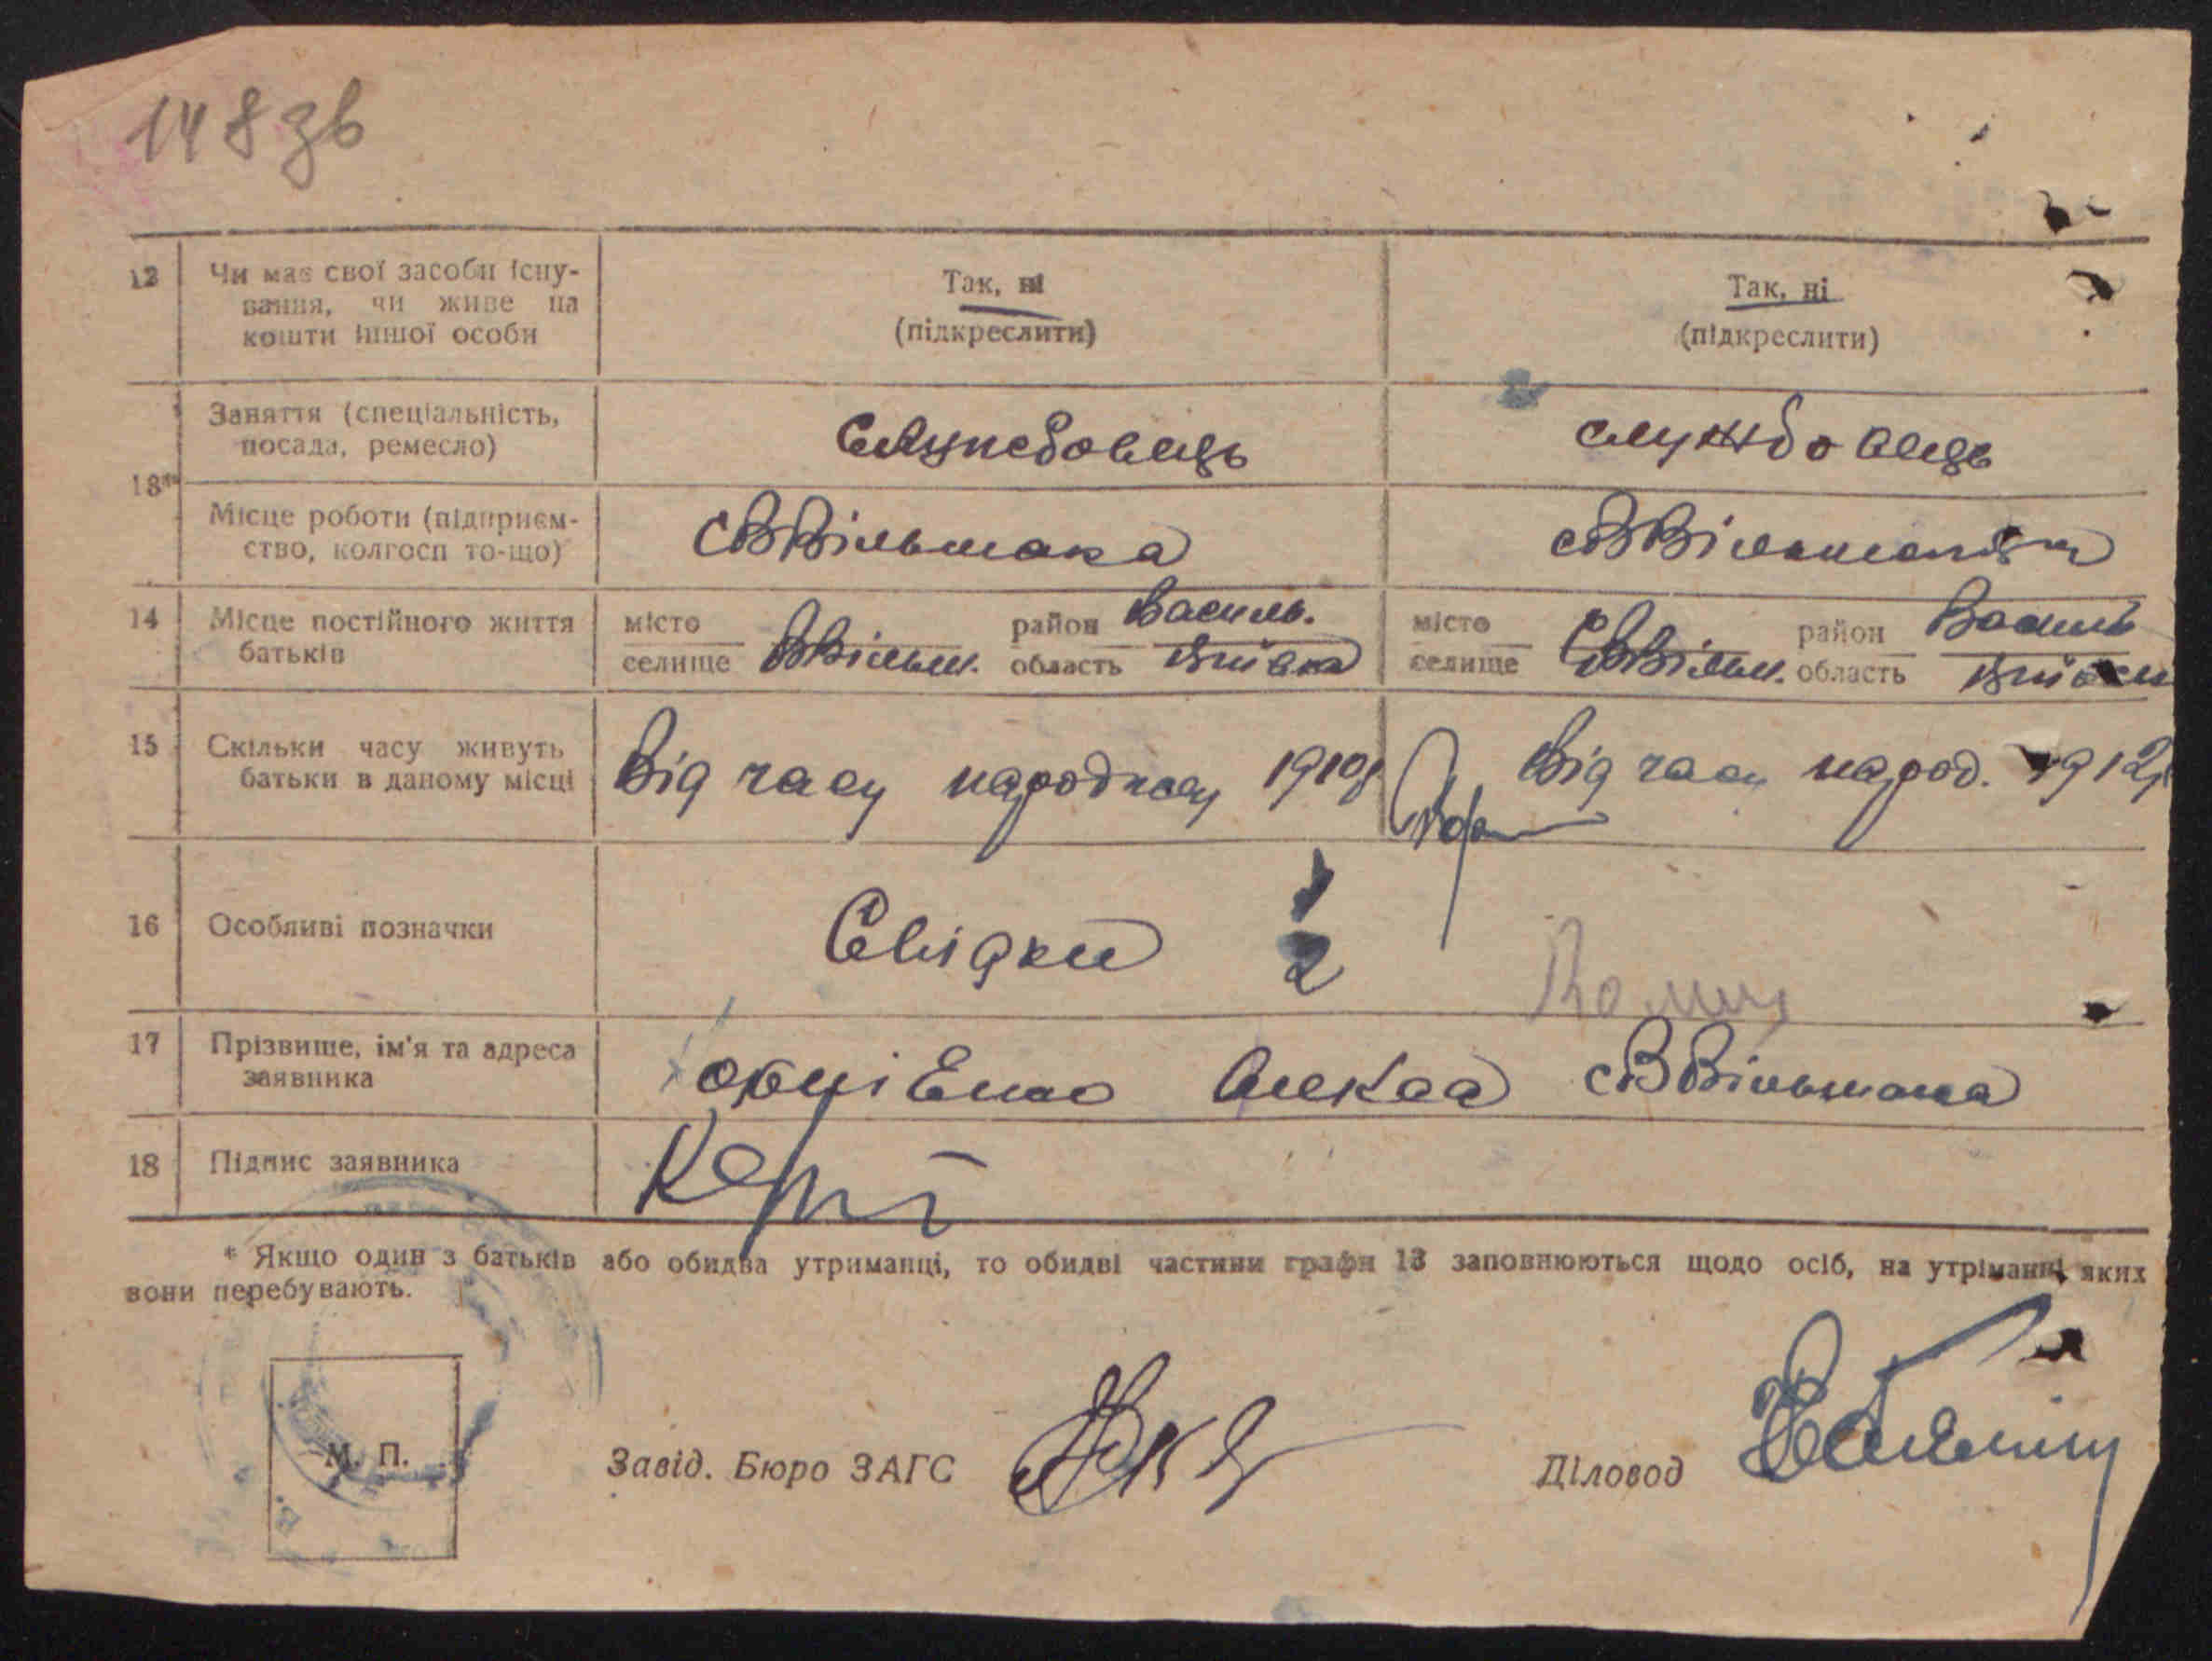 148 зв
12 Чи має свої засоби існу- Так, ні Так, ні
вання, чи живе на (підкреслити) (підкреслити)
кошти іншої особи
Заняття (спеціальність, Службовець службовець
посада, ремесло)
13*
Місце роботи (підприєм- с В Вільшака с В Вільшанка
ство, колгосп то-що)
14 Місце постійного життя місто район Василь. місто район Василь
батьків селище ВВільш. область селище с ВВільш. область
15 Скільки часу живуть Від часу 1910р Від часу народ. 1912р
батьки в даному місці
16 Особливі позначки Свідки 1
2
17 Прізвище, ім'я та адреса Олекса с В Вільшака
заявника
18 Підпис заявника
* Якщо один з батьків або обидва утриманці, то обидві частини графи 13 заповнюються щодо осіб, на утріманні яких
вони перебувають.
М. П. Завід. Бюро ЗАГС Діловод